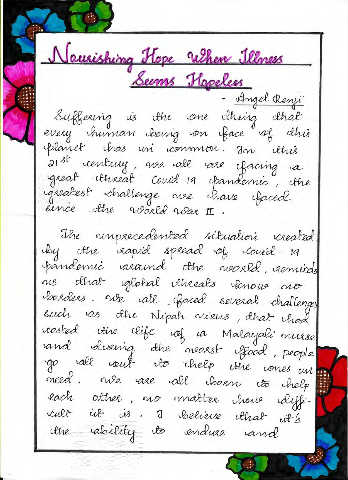 Nourishing Hope When Illness
Seems Hopeless
- Angel Renji
Suffering is the one thing that
every human being on face of this
planet has in common. In this
21st century, we all are facing a
great threat Covid 19 pandemic, the
greatest challenge we have faced
since the World War II.
The unprecedented situation created
by the rapid spread of Covid 19
pandemic around the world, reminds
us that global threats know no
borders. We all faced several challenges
such as the Nipah virus, that had
costed the life of a Malayali nurse
and during the nearest flood, people
go all out to help the ones in
need. We are all born to help
each other, no matter how diffi-
cult it is. I believe that it's
the ability to endure and